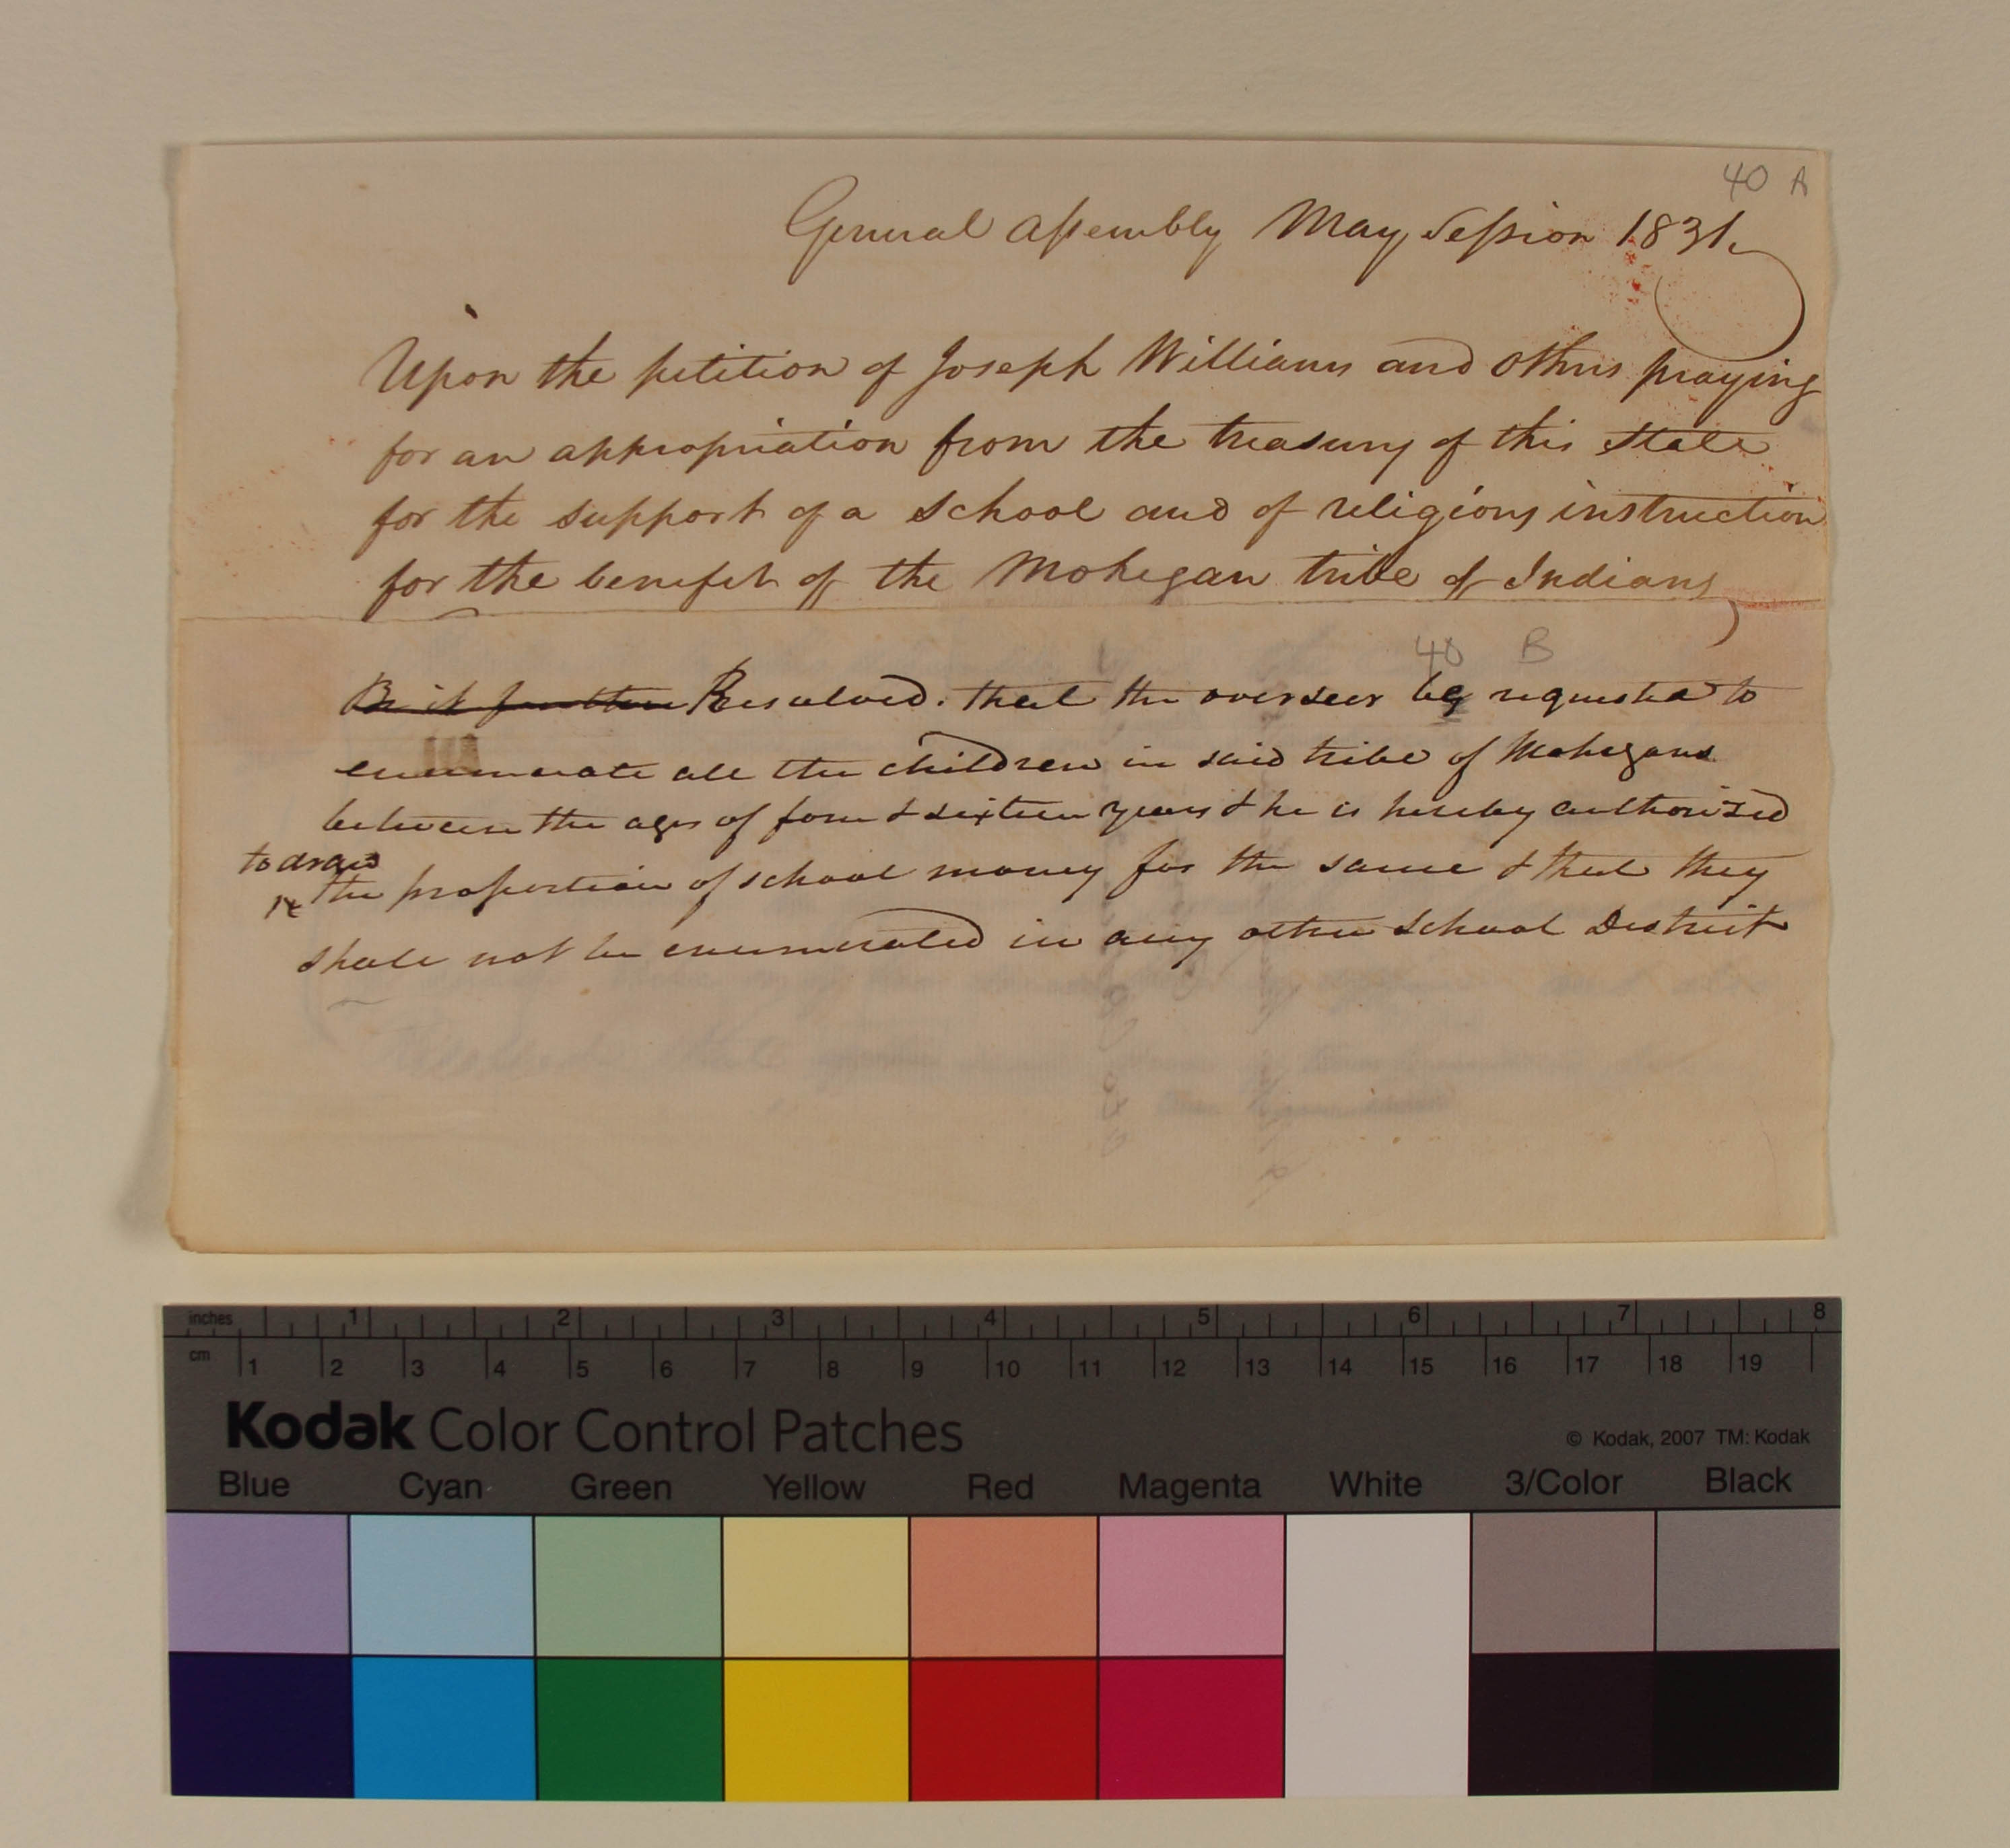 40 A
General Assembly May Session 1831.
Upon the petition of Joseph Williams and others praying
for an appropriation from the treasury of this State
for the support of a school and of religious instruction
for the benefit of the Mohegan tribe of Indians
40 B
Be it further Resolved. that the overseer be requested to
enumerate all the children in said tribe of Mohegans
between the ages of four & sixteen years & he is hereby authorised
to draw
the proportion of school money for the same & that they
shall not be enumerated in any other School District
inches 1 2 3 4 5 6 7 8
cm 1 2 3 4 5 6 7 8 9 10 11 12 13 14 15 16 17 18 19
Kodak Color Control Patches
© Kodak, 2007 TM: Kodak
Blue Cyan Green Yellow Red Magenta White 3/Color Black